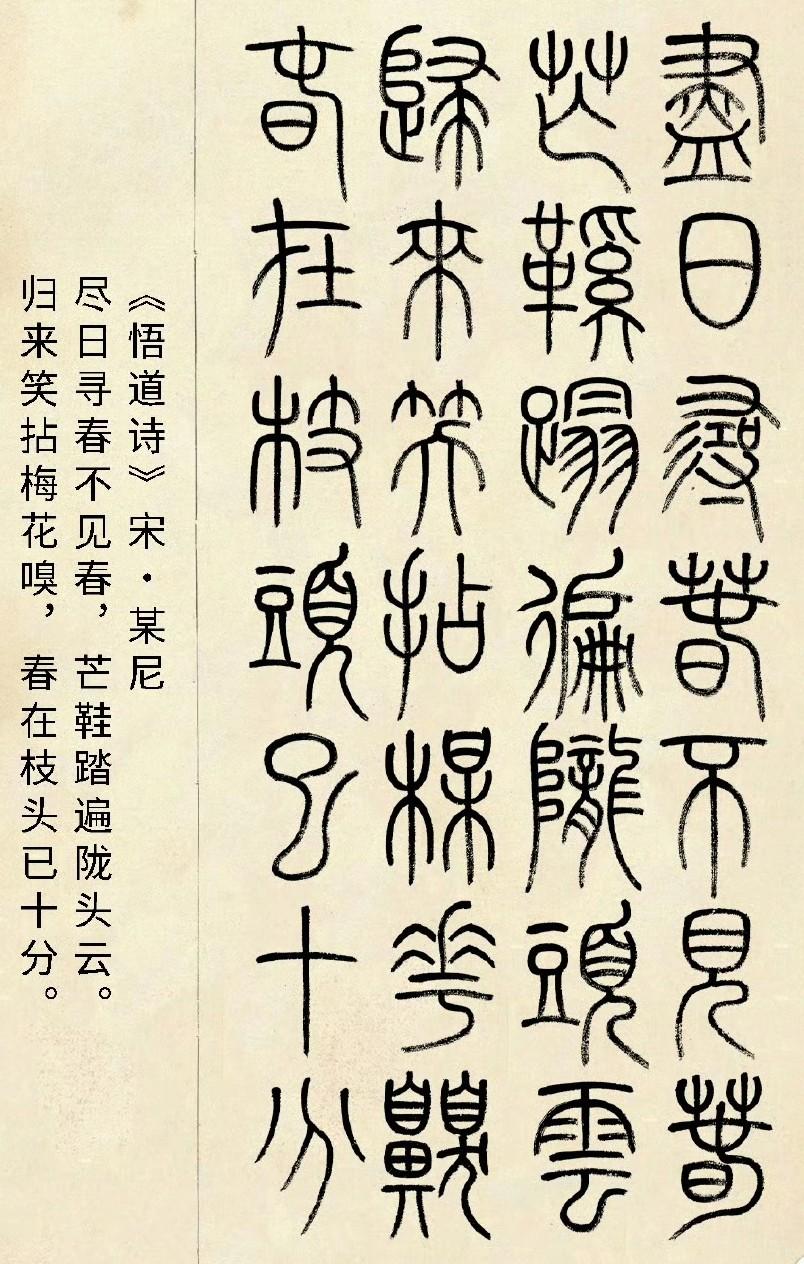 盡日尋萅不見萅
芒鞵蹋徧隴頭雲
歸來笑拈楳花齅
春在枝頭已十分
《悟道诗》宋·某尼
尽日寻春不见春，芒鞋踏遍陇头云。
归来笑拈梅花嗅，春在枝头已十分。